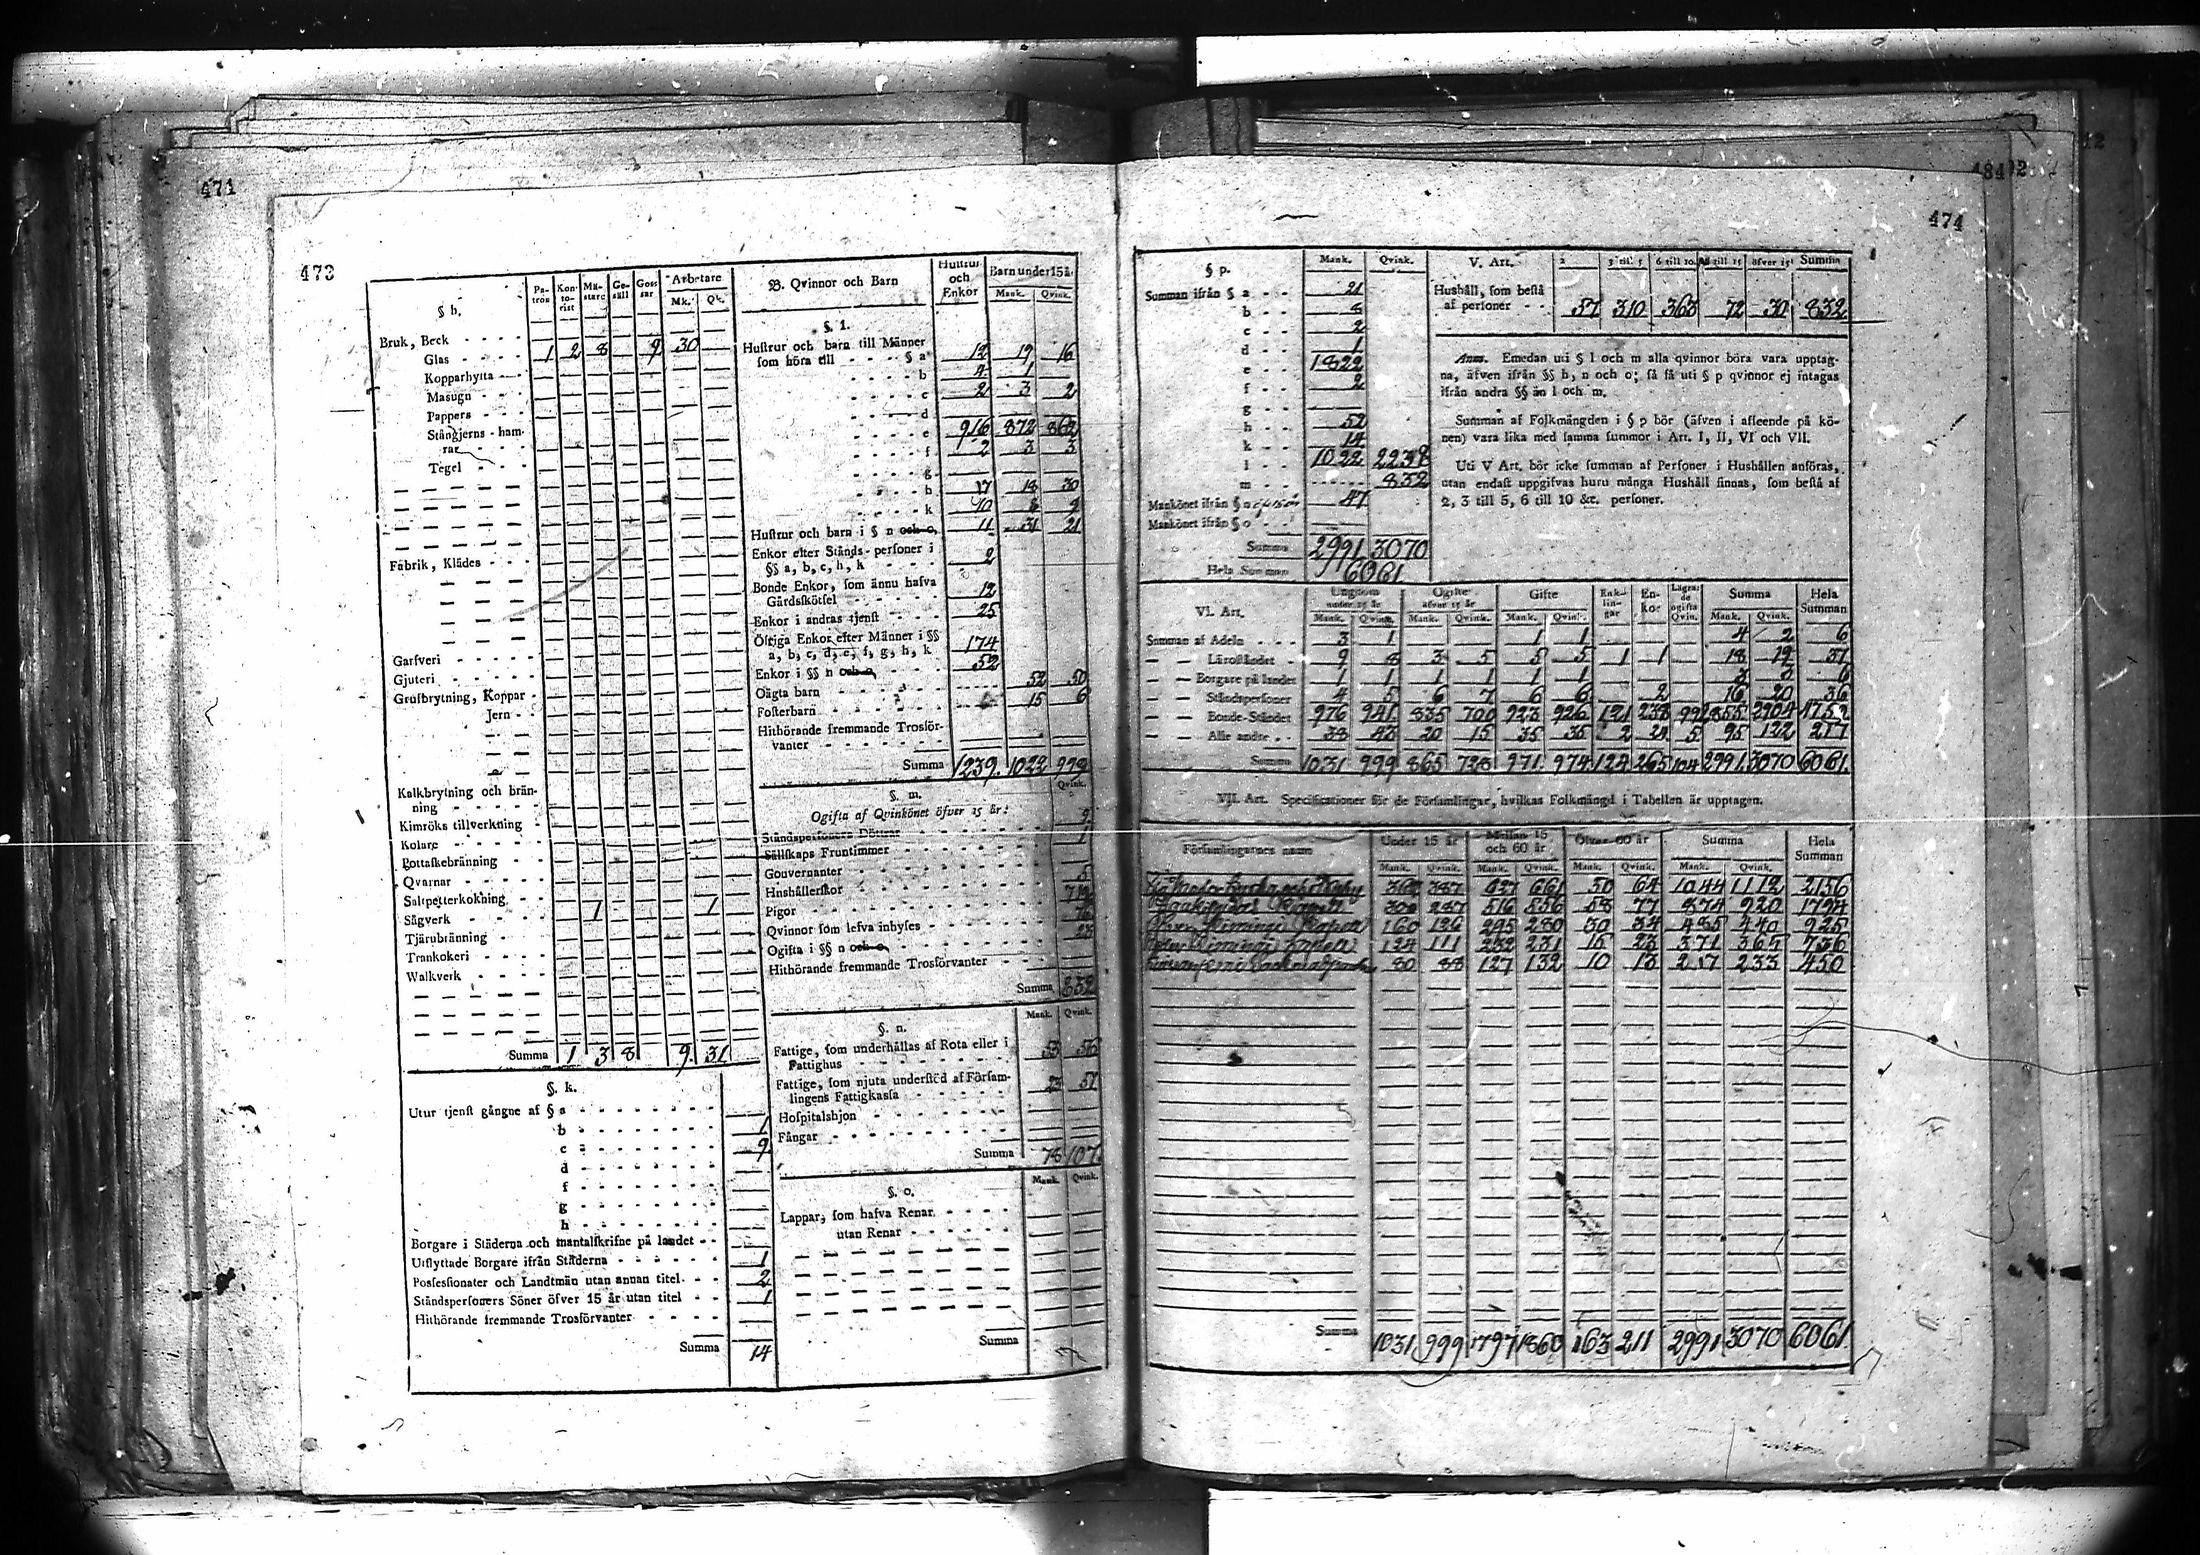 471
473
§ h.
Patron Kontorist Mästare Gesäll Gossar Arbetare
Mk. Qk.
Bruk, Beck - - - -
Glas - - - 1 2 8 9 30
Kopparhytta - -
Masugn - - -
Pappers - - -
Stångjerns-ham-
rar - - -
Tegel - - -
Fabrik, Klädes - - -
Garfveri - - - - -
Gjuteri - - - - -
Grufbrytning, Koppar -
Jern - -
Kalkbrytning och brän-
ning - - - - -
Kimröks tillverkning -
Kolare - - - - -
Pottaskebränning - -
Qvarnar - - - - -
Saltpetterkokning - -
Sågverk - - - - 1 1
Tjärubränning - - -
Trankokeri - - - -
Walkverk - - - -
Summa 1 3 8 9. 31
§. k.
Utur tjenst gångne af § a - - - - - - - -
b - - - - - - - - 1
c - - - - - - - - 9
d - - - - - - - -
f - - - - - - - -
g - - - - - - - -
h - - - - - - - -
Borgare i Städerna och mantalskrifne på landet - -
Utflyttade Borgare ifrån Städerna - - - - - - 1
Possessionater och Landtmän utan annan titel - - - 2
Ståndspersoners Söner öfver 15 år utan titel - - 1
Hithörande fremmande Trosförvanter - - - -
Summa 14
B. Qvinnor och Barn
Hustrur och Enkor Barn under 15 år
Mank. Qvink.
§. l.
Hustrur och barn till Männer
som höra till - - - - § a 12 19 16
b 4 1
c 2 3 2
d
e 916 872 862
f 2 3 3
g
h 17 18 30
k 10 8 9
Hustrur och barn i § n och o, 11 31 21
Enkor efter Stånds-personer i
§§ a, b, c, h, k - - - - 2
Bonde Enkor, som ännu hafva
Gårdsskötsel - - - - - 12
Enkor i andras tjenst - - - - 25
Östiga Enkor efter Männer i §§
a, b, c, d, e, f, g, h, k 174
Enkor i §§ n och o, 52
Oägta barn - - - - - - 52 50
Fosterbarn - - - - - - 15 6
Hithörande fremmande Trosför-
vanter - - - - - -
Summa 1239. 1022 998
§. m. Qvink.
Ogifta af Qvinkönet öfver 15 år:
Ståndspersoners Döttrar - - - - - - 9
Sällskaps Fruntimmer - - - - - - 1
Gouvernanter - - - - - - - -
Hushållerskor - - - - - - - - 5
Pigor - - - - - - - -
Qvinnor som lefva inhyses - - - - - 76
Ogifta i §§ n och o - - - - - - 23
Hithörande fremmande Trosförvanter - - - -
Summa 832
§. n. Mank. Qvink.
Fattige, som underhållas af Rota eller i
Fattighus - - - - - - - - 53 56
Fattige, som njuta understöd af Försam-
lingens Fattigkassa - - - - - - 23 51
Hospitalshjon - - - - - - - -
Fångar - - - - - - - - -
Summa 78 107.
§. o. Mank. Qvink.
Lappar, som hafva Renar - - - -
utan Renar - - - - -
Summa
474
§ p. Mank. Qvink.
Summan ifrån § a - - 21
b - - 8
c - - 2
d - - 1
e - - 1822
f - - 2
g - -
h - - 52
k - - 14
l - - 1022 2238
m - - 832
Mankönet ifrån § n 47
Mankönet ifrån § o - -
Summa 2991 3070
Hela Summan 6061
V. Art. 2 3 til. 5 6 till 10. 11 till 15 öfver 15 Summa
Hushåll, som bestå
af personer - - 57 310 363 72 30 832
Anm. Emedan uti § l och m alla qvinnor böra vara upptag-
na, äfven ifrån §§ h, n och o; så få uti § p qvinnor ej intagas
ifrån andra §§ än l och m.
Summan af Folkmängden i § p bör (äfven i afseende på kö-
nen) vara lika med samma summor i Art. I, II, VI och VII.
Uti V Art. bör icke summan af Personer i Hushållen anföras,
utan endast uppgifvas huru många Hushåll finnas, som bestå af
2, 3 till 5, 6 till 10 &c. personer.
VI. Art. Ungdom under 15 år Ogifte öfver 15 år Gifte Enklingar Enkor Lägrade ogifta Qvin. Summa Hela Summan
Mank. Qvink. Mank. Qvink. Mank. Qvink. Mank. Qvink.
Summan af Adeln - - - 3 1 1 1 4 2 6
— — Läroståndet - 9 8 3 5 5 5 1 1 18 19 37
— — Borgare på landet 1 1 1 1 1 1 3 3 6
— — Ståndspersoner 4 5 6 7 6 6 2 16 20 36
— — Bonde-Ståndet 976 941 835 700 923 926 121 238 99 2855 2904 5759
— — Alle andre - - 38 43 20 15 35 35 2 24 5 95 122 217
Summa 1031 999 865 728 971 974 124 265 104 2991 3070 6061.
VII. Art. Specificationer för de Församlingar, hvilkas Folkmängd i Tabellen är upptagen.
Församlingarnes namn Under 15 år Mellan 15 och 60 år Öfver 60 år Summa Hela Summan
Mank. Qvink. Mank. Qvink. Mank. Qvink. Mank. Qvink.
367 387 627 661 50 64 1044 1112 2156
Kapell 300 287 516 556 58 77 874 920 1794
Kiimingi Kapell 160 126 295 280 30 34 485 440 925
Kiimingi Kapell 124 111 232 231 15 23 371 365 736
80 88 127 132 10 13 217 233 450
Summa 1031 999 1797 1860 163 211 2991 3070 6061